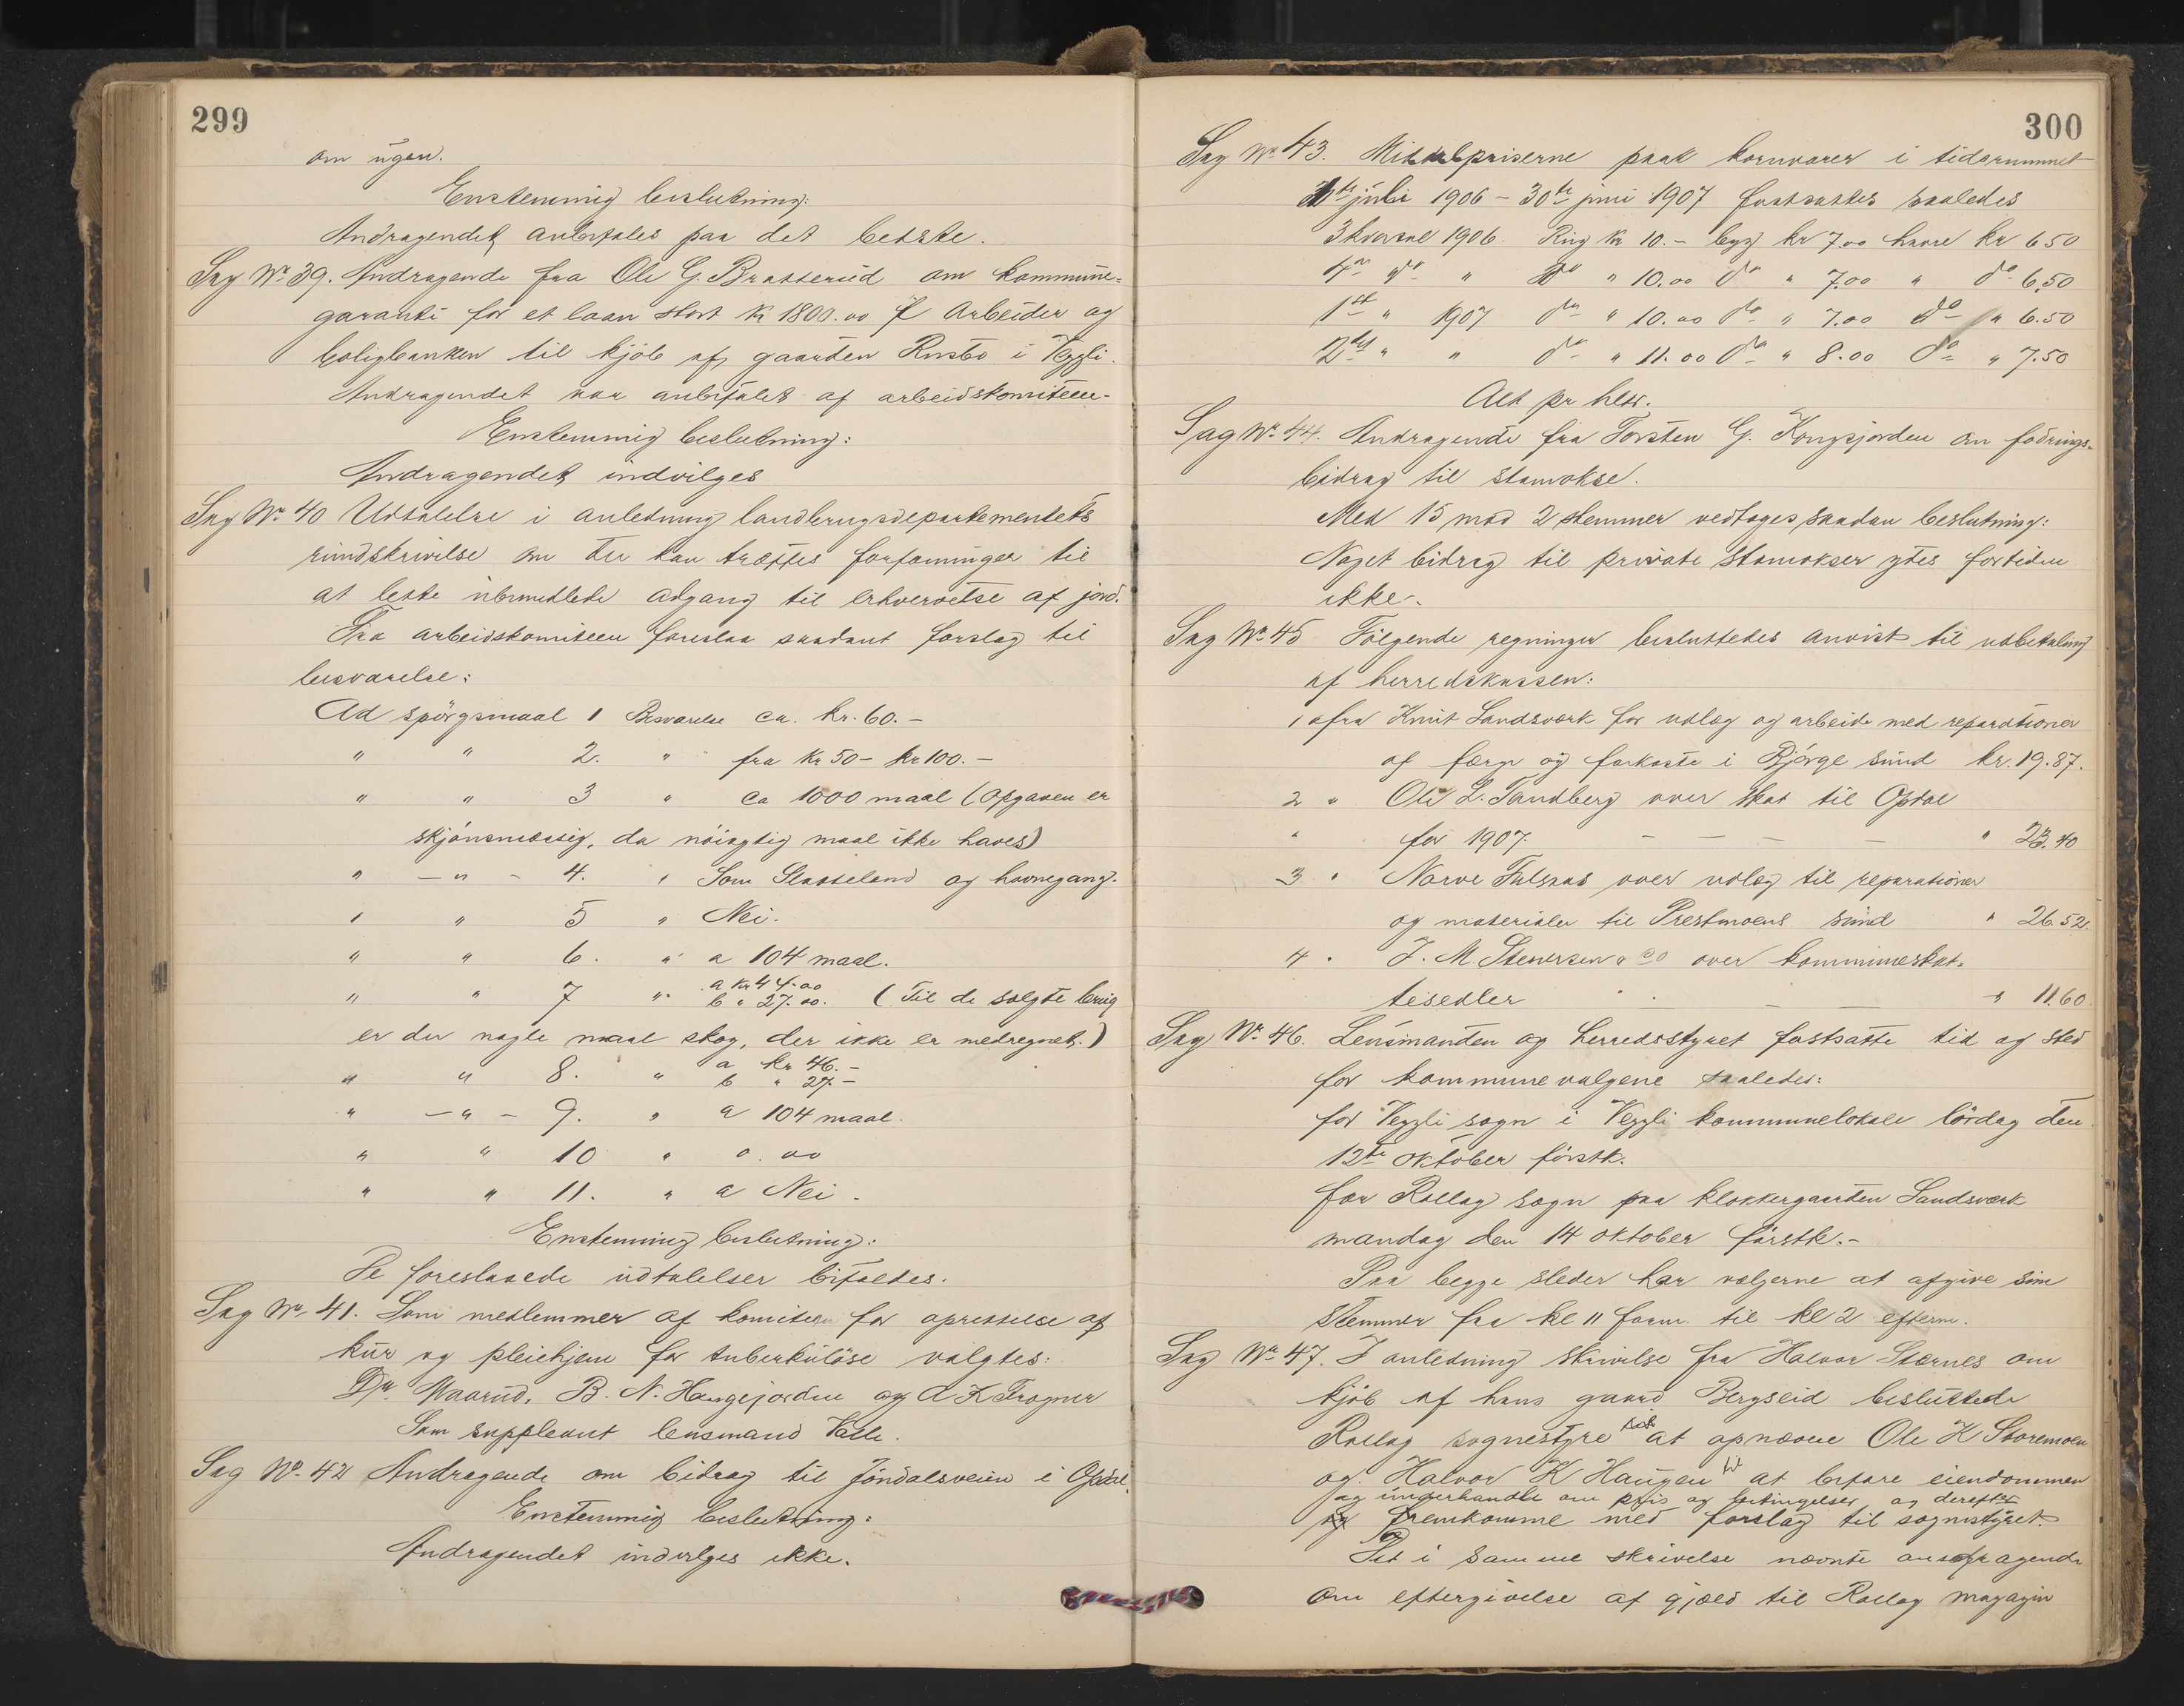 299
om ugen.
Enstemmig beslutning:
Andragendet anbefales paa det bedste.
Sag Nr. 39. Andragende fra Ole G. Bratterud om kommune-
garanti for et laan stort kr 1800.00 i Arbeider og
boligbanken til kjøb af gaarden Rustø i Veggli.
Andragendet var anbefalet af arbeidskomiteen.
Enstemmig beslutning:
Andragendet indvilges
Sag Nr. 40 Udtalelse i anledning landbrugsdepartementets
rundskrivelse om der kan træffes forføininger til
at lette ubemidlede adgang til erhvervelse af jord.
Fra arbeidskomiteen foreslaa saadant forslag til
besvarelse:
Ad spørgsmaal 1 Besvarelse ca. kr. 60.-
" " 2. " fra kr 50 - kr 100.-
" " 3 " ca 1000 maal (Opgaven er
skjønsmæssig, da nøiagtig maal ikke haves)
" - " - 4. " Som Slaatteland og havnegang.
" " 5 " Nei.
" " 6. " a 104 maal.
" " 7 " a kr 44.00 b " 27.00. (Til de solgte brug
er der nogle maal skog, der ikke er medregnet.)
" " 8. " a kr 46.- b " 27.-
" - " - 9. " a 104 maal.
" " 10 " 0.00
" " 11. " a Nei.
Enstemmig beslutning:
De foreslaaede udtalelser bifaldes.
Sag Nr. 41. Som medlemmer af komiteen for oprettelse af
kur og pleiehjem for tuberkuløse valgtes:
Dr. Maarud, B. N. Haugejorden og A K Frogner
Som suppleant lensmand Valle.
Sag No. 42 Andragende om bidrag til Jondalsveien i Opdal.
Enstemmig beslutning:
Andragendet indvilges ikke.
300
Sag Nr. 43. Middelpriserne paa kornvarer i tidsrummet
1ste juli 1906 - 30te juni 1907 fastsattes saaledes
3 kvartal 1906. Rug kr 10.- byg kr 7.00 havre kr 6.50
4de do " do " 10.00 do " 7.00 " do 6.50
1ste " 1907 do " 10.00 do " 7.00 do " 6.50
2det " " do " 11.00 do " 8.00 do " 7.50
Alt pr hltr.
Sag Nr. 44. Andragende fra Torsten G. Kongsjorden om fodrings-
bidrag til stamokse.
Med 15 mod 2 stemmer vedtoges saadan beslutning:
Noget bidrag til private stamokser ydes fortiden
ikke.
Sag Nr. 45 Følgende regninger besluttedes anvist til udbetaling
af herredskassen:
1 a fra Knut Landsværk for udlæg og arbeide med reparationer
af færge og forkaste i Bjørge sund kr. 19.87.
2 " Ole L. Sandberg over skat til Opdal
" for 1907. - - - - " 23.40
3 " Narve Fulsaas over udlæg til reparationer
og materialer til Prestmoens sund " 26.52.
4 " J. M. Stenersen & co over kommuneskat-
tesedler - - " 11.60
Sag Nr. 46. Lensmanden og herredsstyret fastsatte tid og sted
for kommunevalgene saaledes:
for Veggli sogn i Veggli kommunelokale lørdag den
12te oktober førstk.
for Rollag sogn paa klokkergaarden Landsværk
mandag den 14 oktober førstk.-
Paa begge steder har vælgerne at afgive sine
stemmer fra kl 11 form. til kl 2 efterm.
Sag Nr. 47. I anledning skrivelse fra Halvor Stærnes om
kjøb af hans gaard Bergseid besluttede
Rollag sognestyre at opnævne Ole K Storemoen
og Halvor K Haugen til at befare eiendommen
og underhandle om pris og betingelser og derefter
fremkomme med forslag til sognestyret.
Det i samme skrivelse nævnte andragende
om eftergivelse af gjæld til Rollag magazin